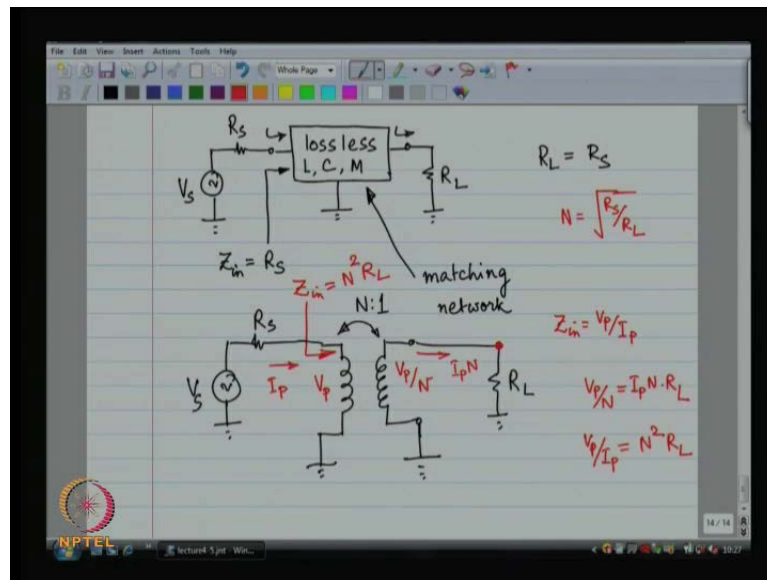 File Edit View Insert Actions Tools Help
Whole Page
B I
R_S
lossless
L, C, M
V_S
R_L
R_L = R_S
N = √(R_S/R_L)
Z_in = R_S
matching
network
Z_in = N² R_L
N:1
R_S
V_S
I_P
V_P
V_P/N
I_P N
R_L
Z_in = V_P/I_P
V_P/N = I_P N · R_L
V_P/I_P = N² R_L
14 / 14
NPTEL
lecture4-5.jnt - Win...
10:27